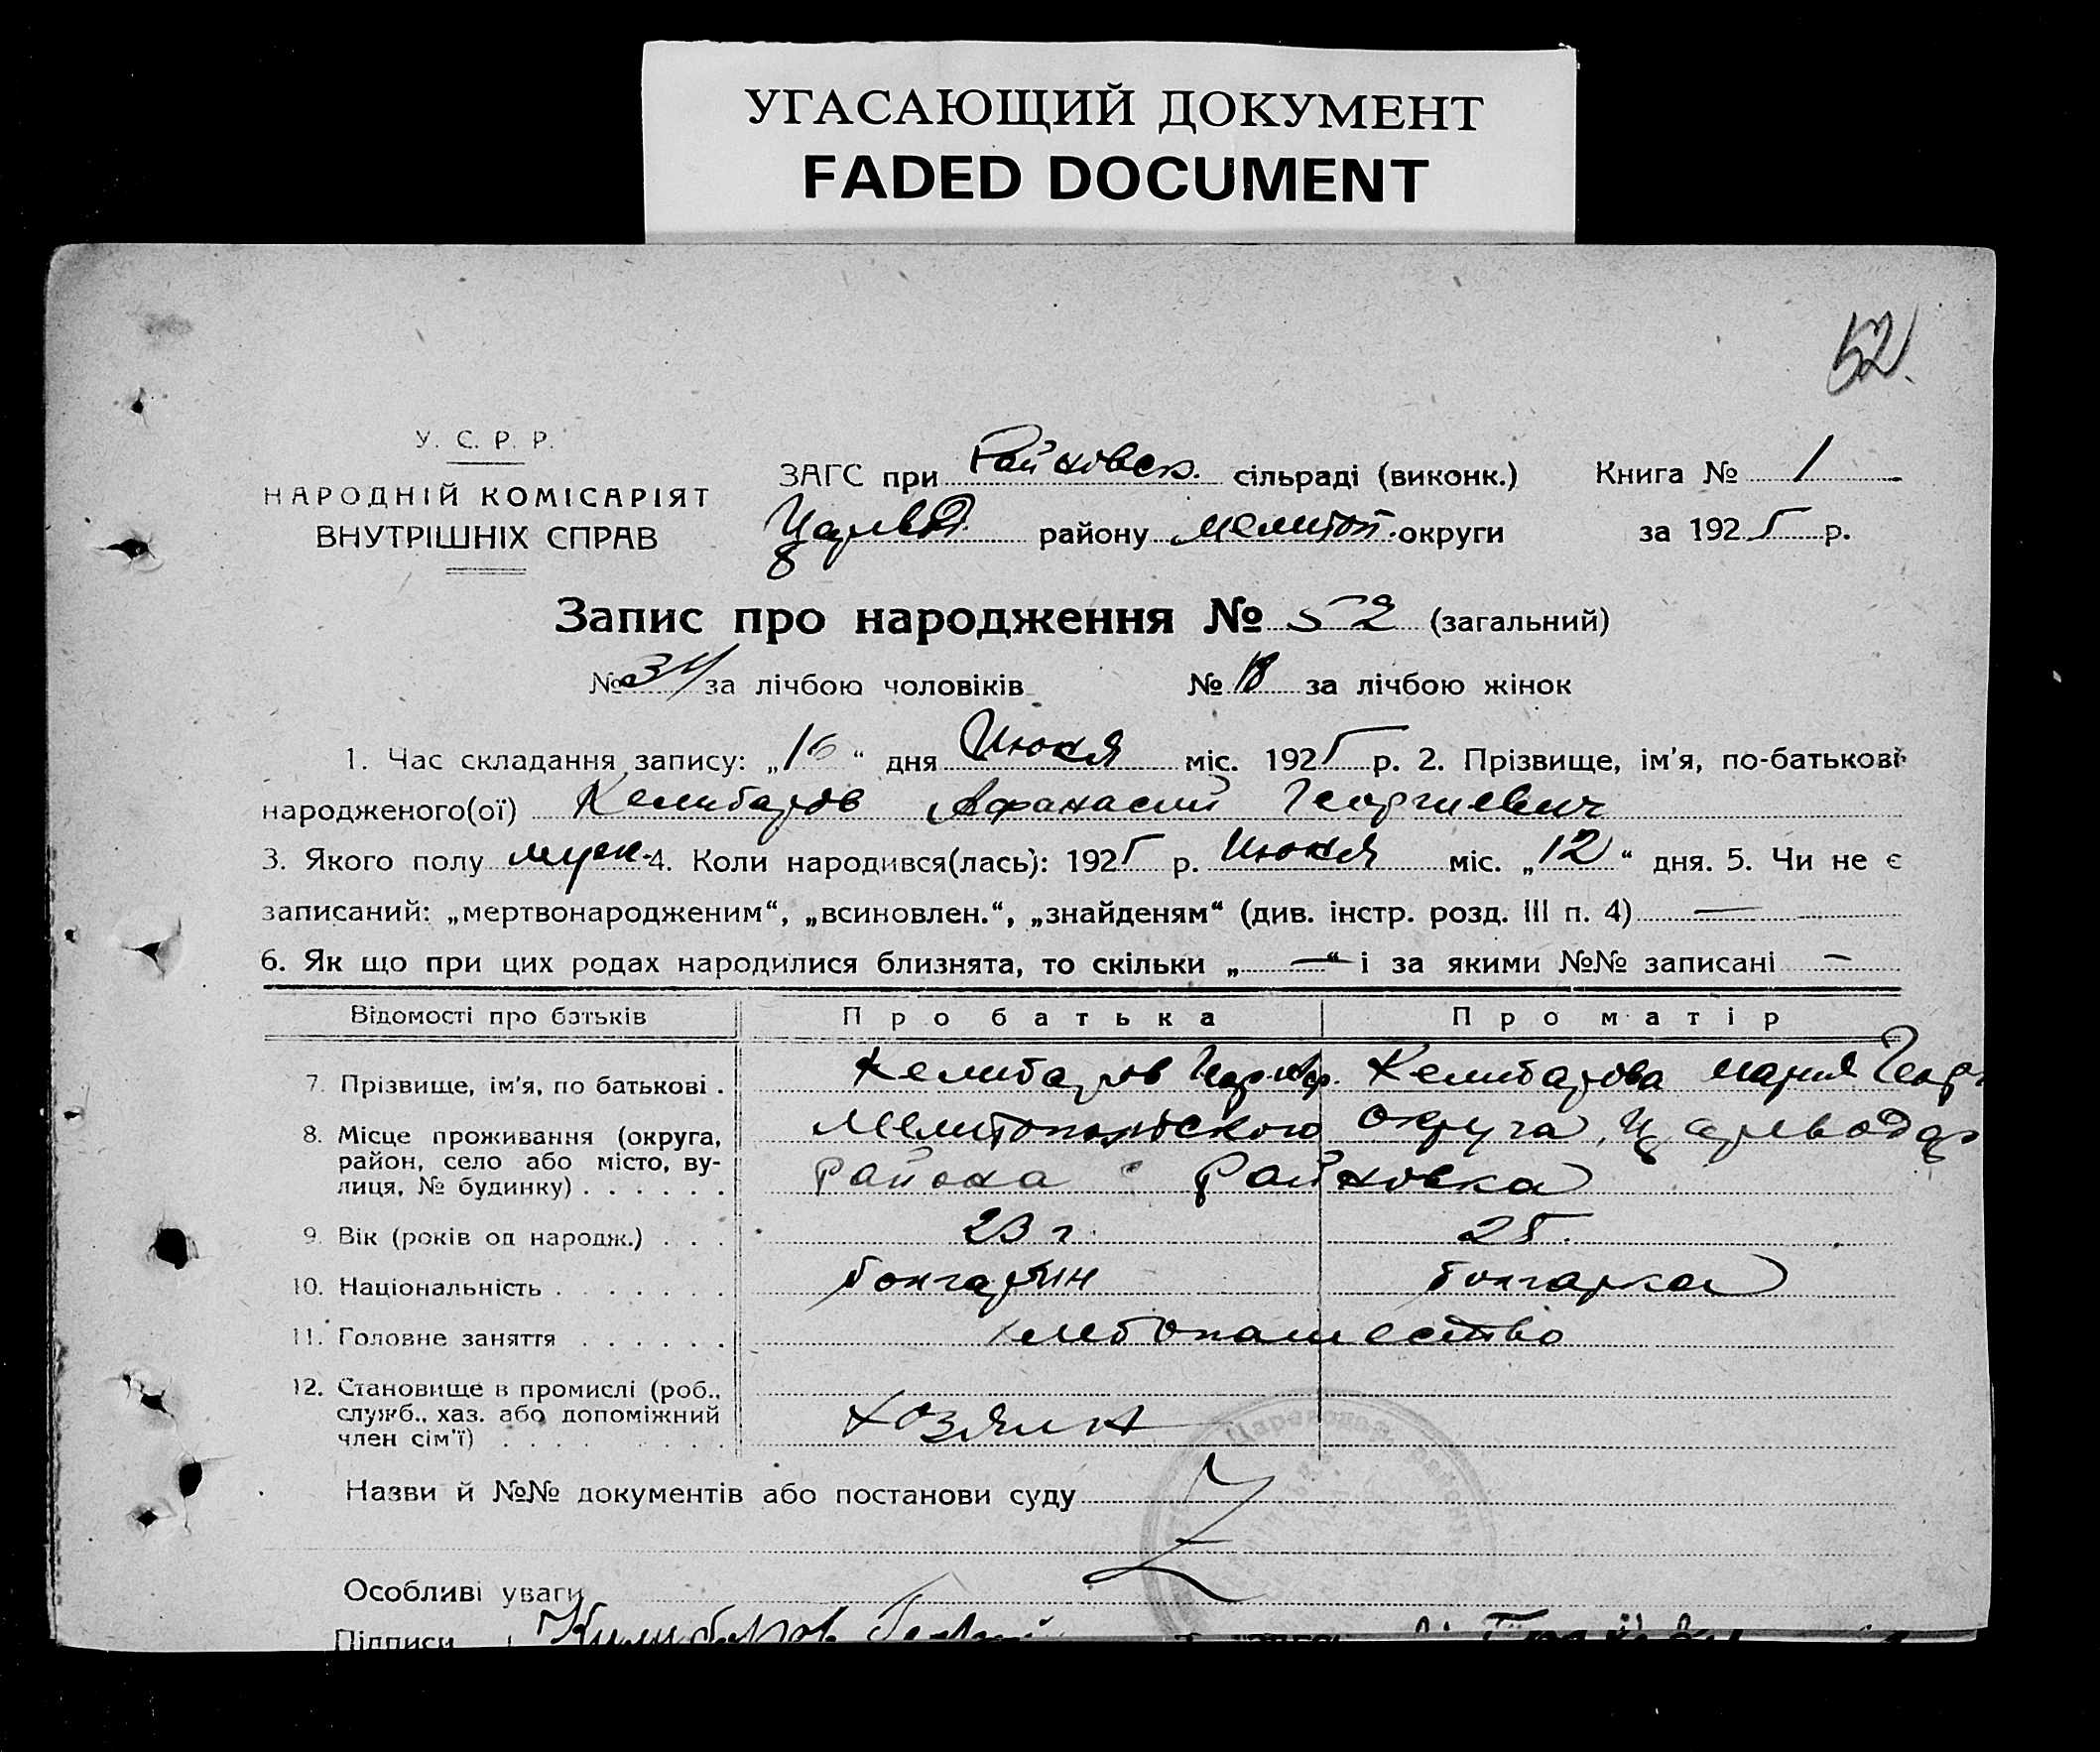 УГАСАЮЩИЙ ДОКУМЕНТ
FADED DOCUMENT
52.
У. С. Р. Р.
НАРОДНІЙ КОМІСАРІЯТ
ВНУТРІШНІХ СПРАВ
ЗАГС при Райновск. сільраді (виконк.) Книга № 1
Царевод. району Мелитоп. округи за 1925 р.
Запис про народження № 52 (загальний)
№ 34 за лічбою чоловіків № 18 за лічбою жінок
1. Час складання запису: „16“ дня Июля міс. 1925 р. 2. Прізвище, ім'я, по-батькові
народженого(ої) Келибаров Афанасий Георгиевич
3. Якого полу муж. 4. Коли народився(лась): 1925 р. Июля міс. „12“ дня. 5. Чи не є
записаний: „мертвонародженим“, „всиновлен.“, „знайденям“ (див. інстр. розд. III п. 4) —
6. Як що при цих родах народилися близнята, то скільки „—“ і за якими №№ записані —
Відомості про батьків Про батька Про матір
7. Прізвище, ім'я, по батькові . Келибаров Келибарова Мария Геор
8. Місце проживання (округа, район, село або місто, вулиця, № будинку) . . . . . . Мелитопольского округа, Цареводар
района Райновка
9. Вік (років од народж.) . . . 23 г. 25.
10. Національність . . . . . . . болгарин болгарка
11. Головне заняття . . . . . . хлебопашество
12. Становище в промислі (роб., служб., хаз. або допоміжний член сім'ї) . . . . . . . . . хозяин
Назви й №№ документів або постанови суду
Особливі уваги
Підписи Килибаров Георгий